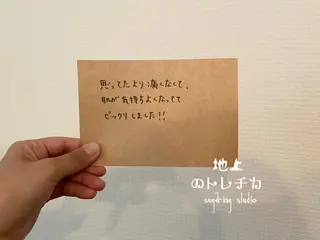 思ってたより痛くなくて、
肌が気持ちよくなってて
ビックリしました!!
地上
のトレチカ